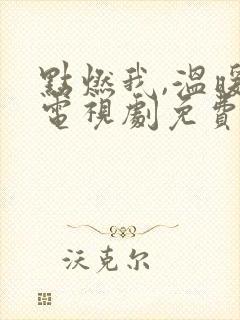 點燃我,溫暖
電視劇免費
沃克尔